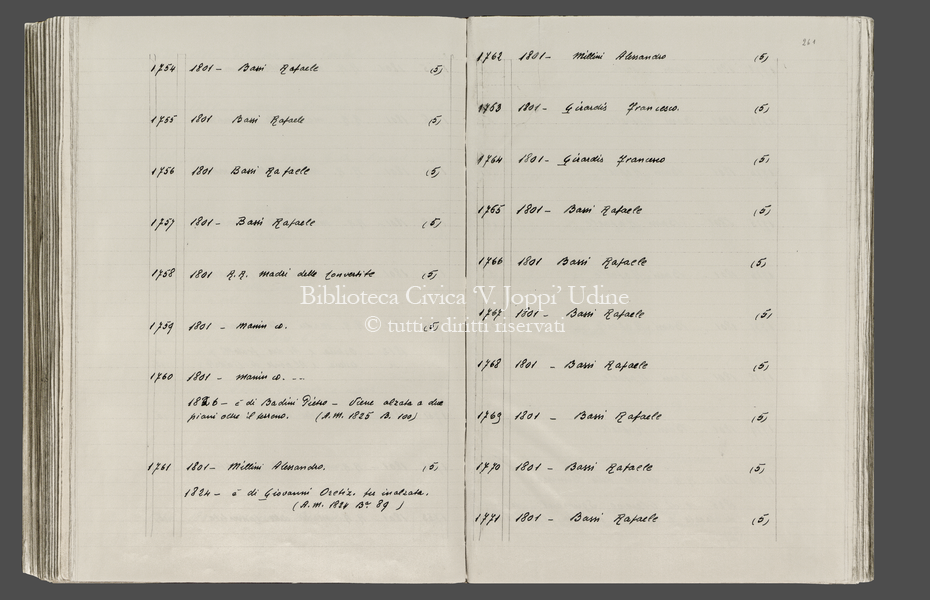 1754 1801 - Bassi Rafaele (5)
1755 1801 Bassi Rafaele (5)
1756 1801 Bassi Rafaele (5)
1757 1801 - Bassi Rafaele (5)
1758 1801 R.R. Madri delle Convertite (5)
1759 1801 - Manin co. (5)
1760 1801 - Manin co. ---
1826 - è di Badini Pietro - Viene alzata a due
piani oltre il terreno. (A.M. 1825 B. 100)
1761 1801 - Millini Alessandro. (5)
1824 - è di Giovanni Oretiz. fu inalzata.
(A.M. 1824 Ba. 89)
261
1762 1801 - Millini Alessandro (5)
1763 1801 - Girardis Francesco. (5)
1764 1801 - Girardis Francesco (5)
1765 1801 - Bassi Rafaele (5)
1766 1801 Bassi Rafaele (5)
1767 1801 - Bassi Rafaele (5)
1768 1801 - Bassi Rafaele (5)
1769 1801 - Bassi Rafaele (5)
1770 1801 - Bassi Rafaele (5)
1771 1801 - Bassi Rafaele (5)
Biblioteca Civica 'V. Joppi' Udine
© tutti i diritti riservati